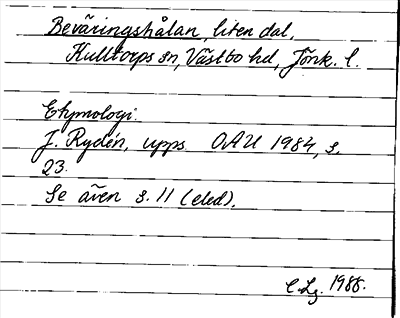 Beväringshålan, liten dal,
Kulltorps sn, Västbo hd, Jönk. l.
Etymologi.
J. Rydén, upps OAU 1984, s.
23.
Se även s. 11 (eled).
C Lg. 1988.